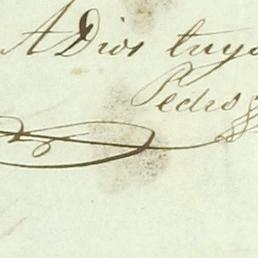 A Dios tuyo
Pedro